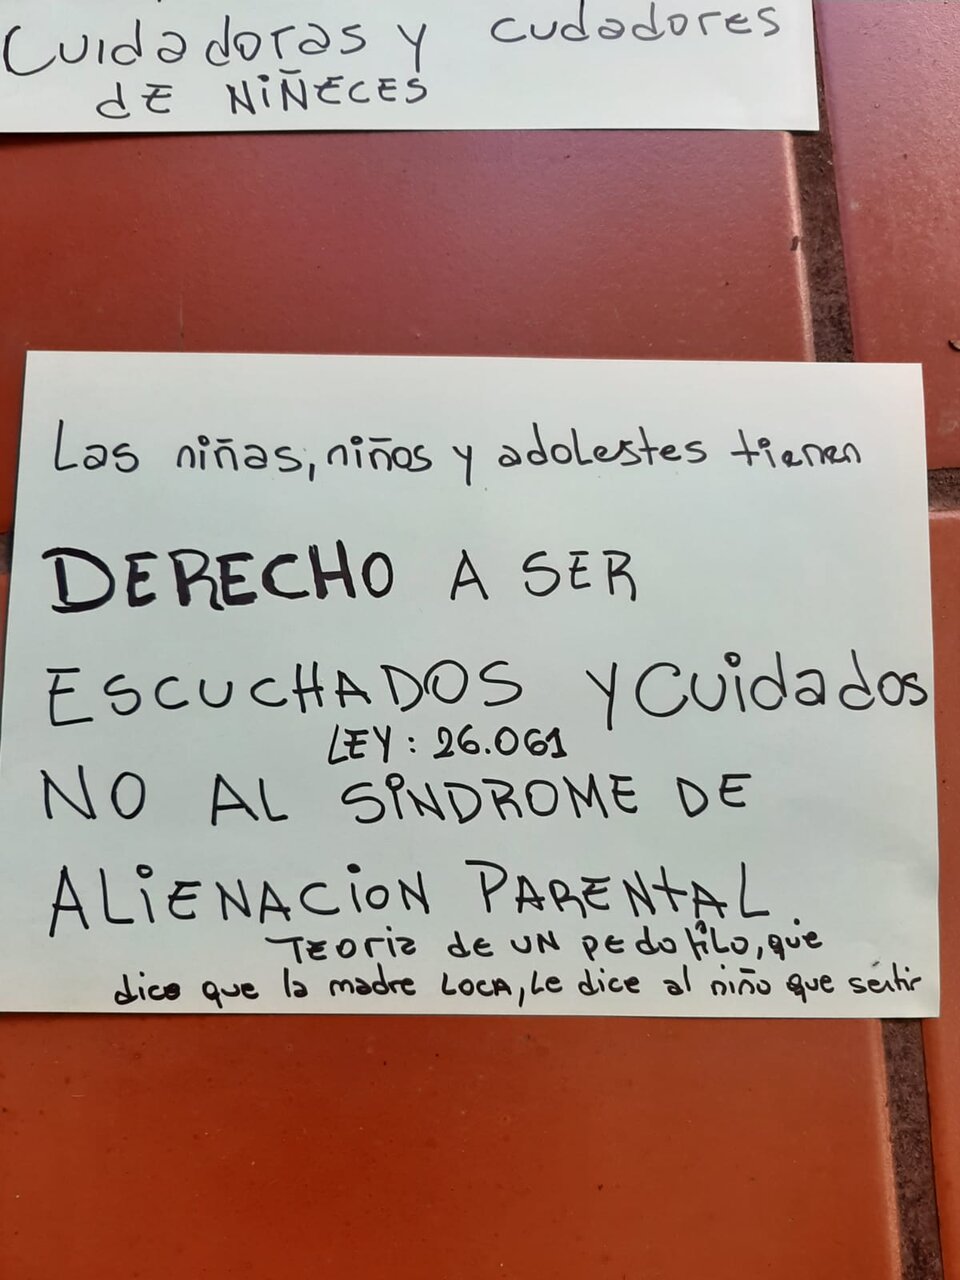 Cuidadoras y cudadores
dE NIÑECES
Las niñas, niños y adolestes tienen
DERECHO A SER
ESCUCHADOS Y Cuidados
LEY: 26.061
NO AL SINDROME DE
ALiENACION PARENTAL.
TEORIA de UN pedofiLo, que
dice que la madre LOCA, Le dice al niño que sentir